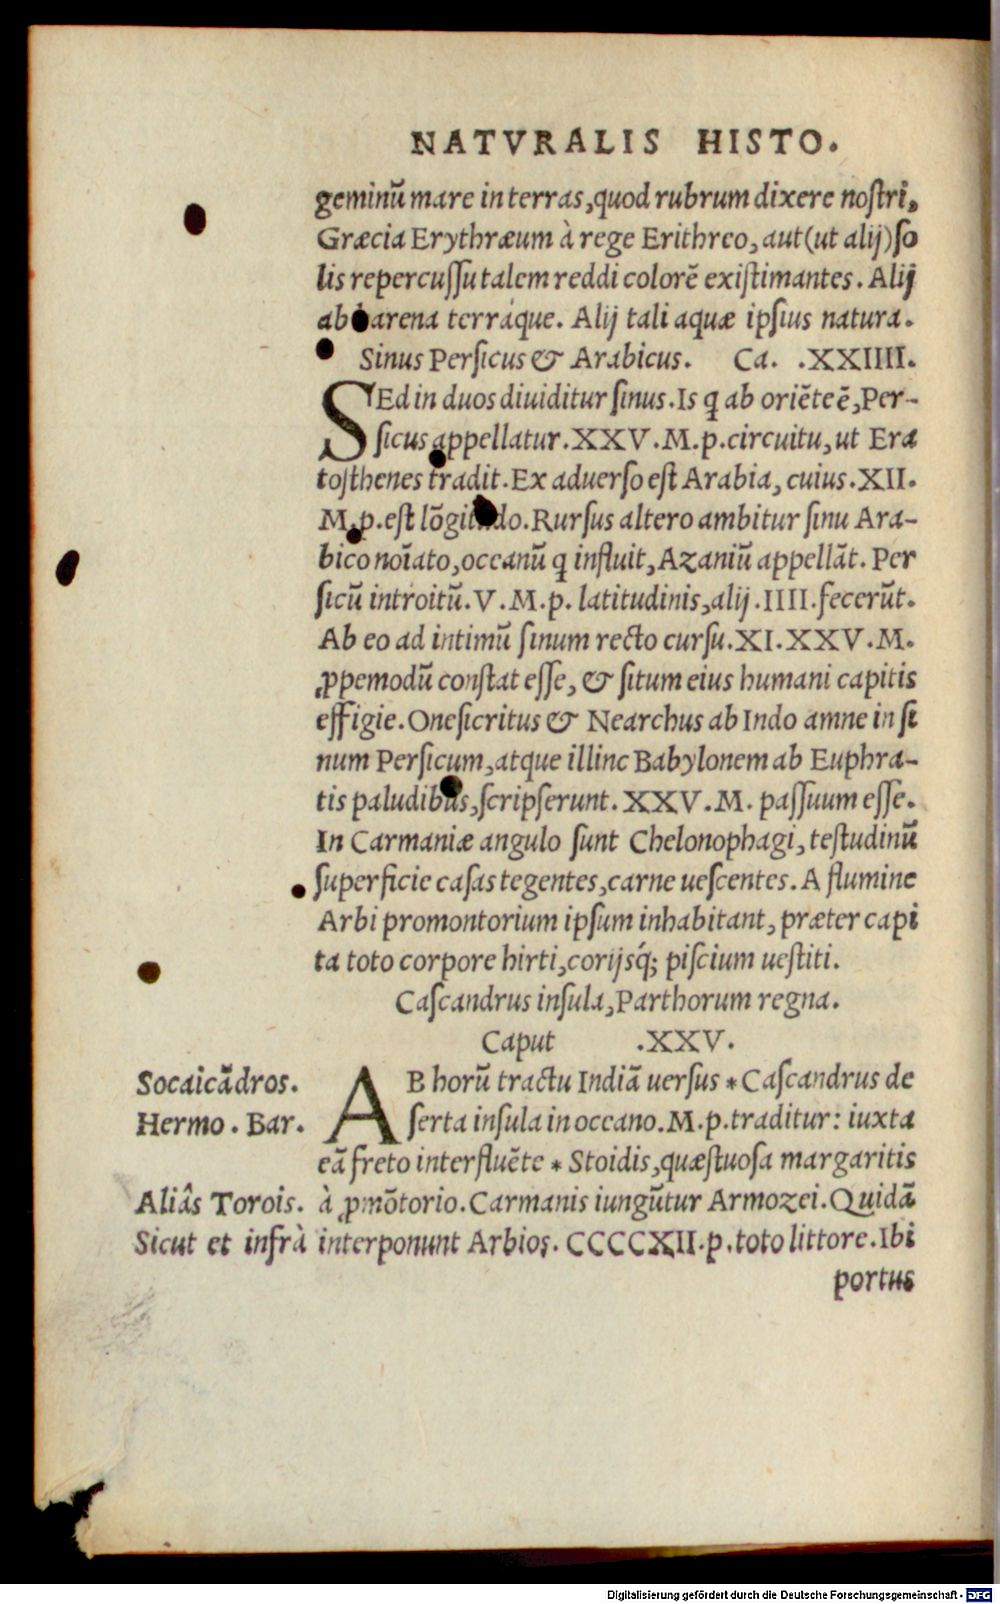 NATVRALIS HISTO.
geminũ mare in terras, quod rubrum dixere noſtri,
Græcia Erythræum à rege Erithreo, aut (ut alij) ſo
lis repercuſſu talem reddi colorẽ exiſtimantes. Alij
ab arena terráque. Alij tali aquæ ipſius natura.
Sinus Perſicus & Arabicus. Ca. .XXIIII.
SEd in duos diuiditur ſinus. Is q ab oriẽte ẽ, Per-
ſicus appellatur. XXV. M. p. circuitu, ut Era
toſthenes tradit. Ex aduerſo eſt Arabia, cuius. XII.
M. p. eſt lõgitudo. Rurſus altero ambitur ſinu Ara-
bico noĩato, oceanũ q influit, Azaniũ appellãt. Per
ſicũ introitũ. V. M. p. latitudinis, alij. IIII. fecerũt.
Ab eo ad intimũ ſinum recto curſu. XI. XXV. M.
ꝓpemodũ conſtat eſſe, & ſitum eius humani capitis
effigie. Oneſicritus & Nearchus ab Indo amne in ſi
num Perſicum, atque illinc Babylonem ab Euphra-
tis paludibus, ſcripſerunt. XXV. M. paſſuum eſſe.
In Carmaniæ angulo ſunt Chelonophagi, teſtudinũ
ſuperficie caſas tegentes, carne ueſcentes. A flumine
Arbi promontorium ipſum inhabitant, præter capi
ta toto corpore hirti, corijsq́; piſcium ueſtiti.
Caſcandrus inſula, Parthorum regna.
Caput .XXV.
Socaicãdros.
Hermo. Bar.
AB horũ tractu Indiã uerſus * Caſcandrus de
ſerta inſula in oceano. M. p. traditur: iuxta
eã freto interfluẽte * Stoidis, quæſtuoſa margaritis
Aliâs Torois.
à ꝓmõtorio. Carmanis iungũtur Armozei. Quidã
Sicut et infrà
interponunt Arbios. CCCCXII. p. toto littore. Ibi
portus
Digitalisierung gefördert durch die Deutsche Forschungsgemeinschaft - DFG